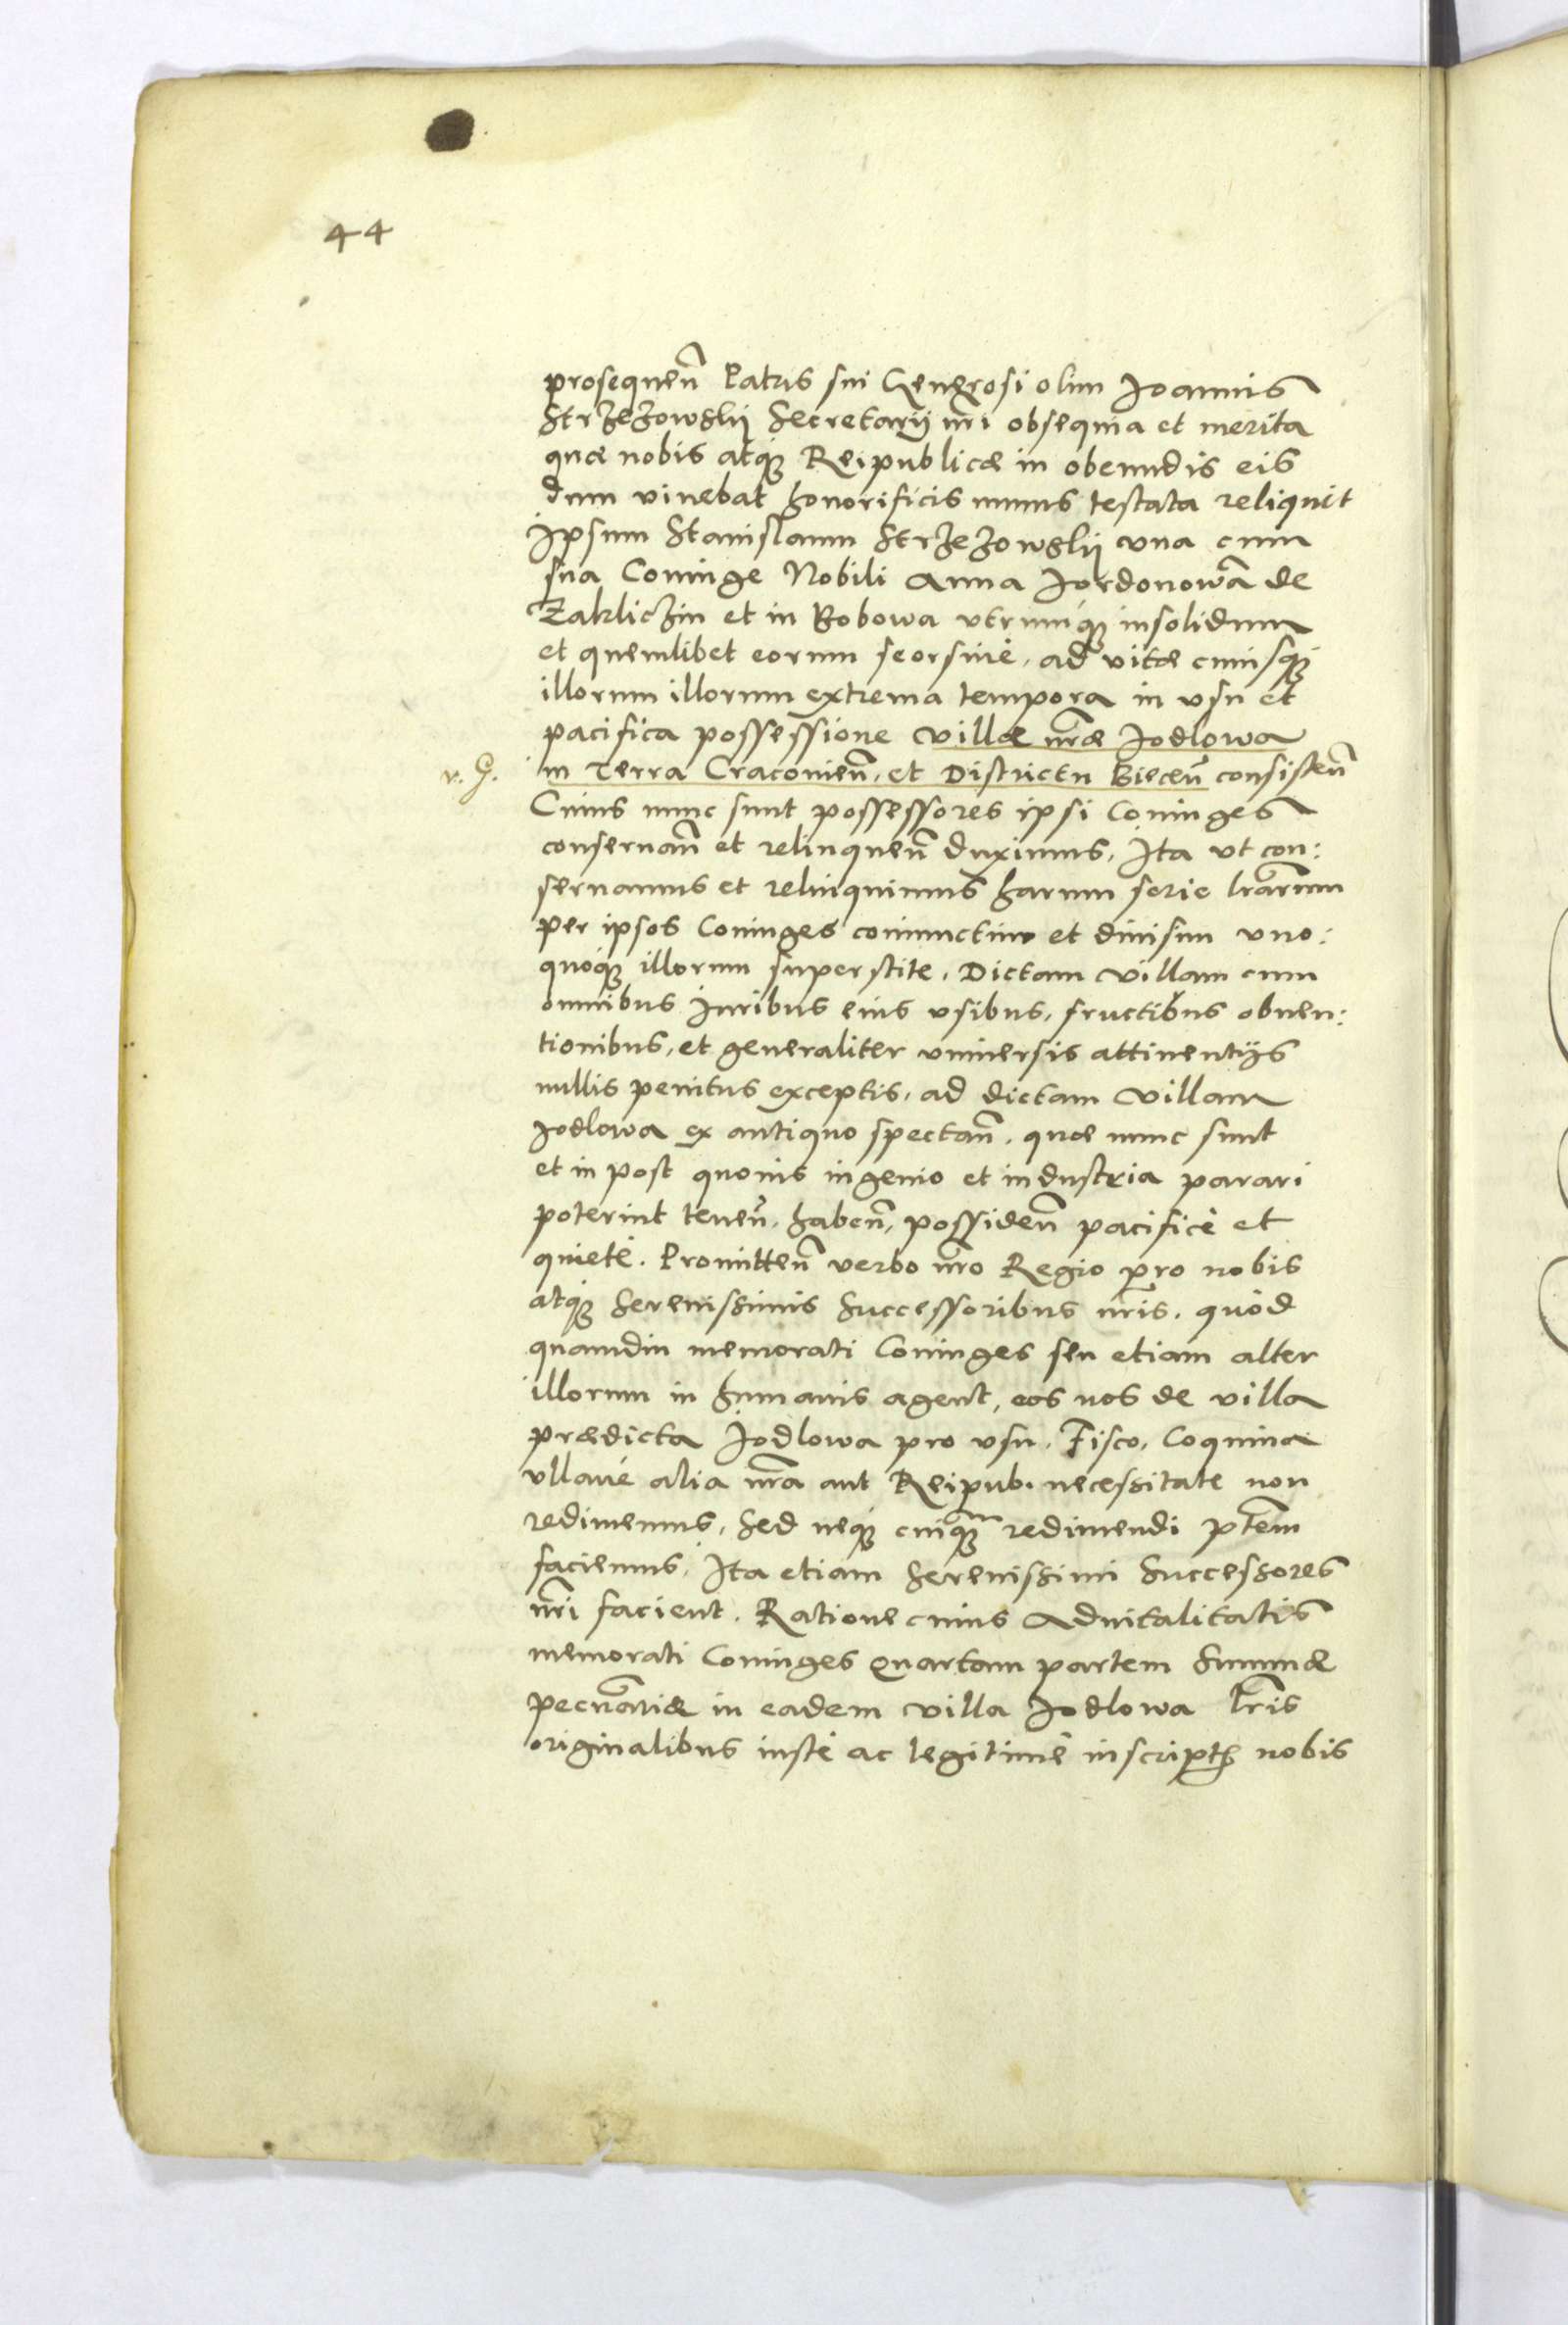 44
prosequen̄ Patris sui Generosi olim Joannis
Strzezowskij Secretarij nr̄i obsequia et merita
quæ nobis atq₃ Reipublicæ in obeundis eis
dum viuebat honorificis munus testata reliquit
Ipsum Stanislaum Strzezowskij vna cum
sua Coniuge Nobili Anna Jordonowa de
Zakliczin et in Bobowa vtrumq₃ insolidum
et quemlibet eorum seorsiue, ad vitæ cuiusq₃
illorum illorum extrema tempora in vsu et
pacifica possessione villæ nr̄æ Jodlowa
v. G. in Terra Cracouien̄, et Districtu Biecen̄ consisten̄
Cuius nunc sunt possessores ipsi Coniuges
conseruan̄ et relinquen̄ duximus, Ita vt con:
seruamus et relinquimus harum serie lr̄arum
per ipsos Coniuges coniunctim et diuisim vno:
quoq₃ illorum superstite, Dictam villam cum
omnibus Iuribus eius vsibus, fructibus obuen:
tionibus, et generaliter vniuersis attinentijs
nullis penitus exceptis, ad dictam villam
Jodlowa ex antiquo spectan̄, quæ nunc sunt
et in post quouis ingenio et industria parari
poterint tenen̄, haben̄, possiden̄ pacificè et
quietè. Promitten̄ verbo nr̄o Regio pro nobis
atq₃ Serenissimis Successoribus nr̄is, quòd
quamdiu memorati Coniuges seu etiam alter
illorum in humanis agent, eos nos de villa
prædicta Jodlowa pro vsu, Fisco, Coquina
vllaue alia nr̄a aut Reipub. necessitate non
redimemus, Sed neq₃ cuiq₃m redimendi ptēm
faciemus, Ita etiam Serenissimi Successores
nr̄i facient. Ratione cuius Aduitalitatis
memorati Coniuges Quartam partem Summæ
pecun̄ariæ in eadem villa Jodlowa lr̄is
originalibus iustè ac legitimè inscript₃ nobis